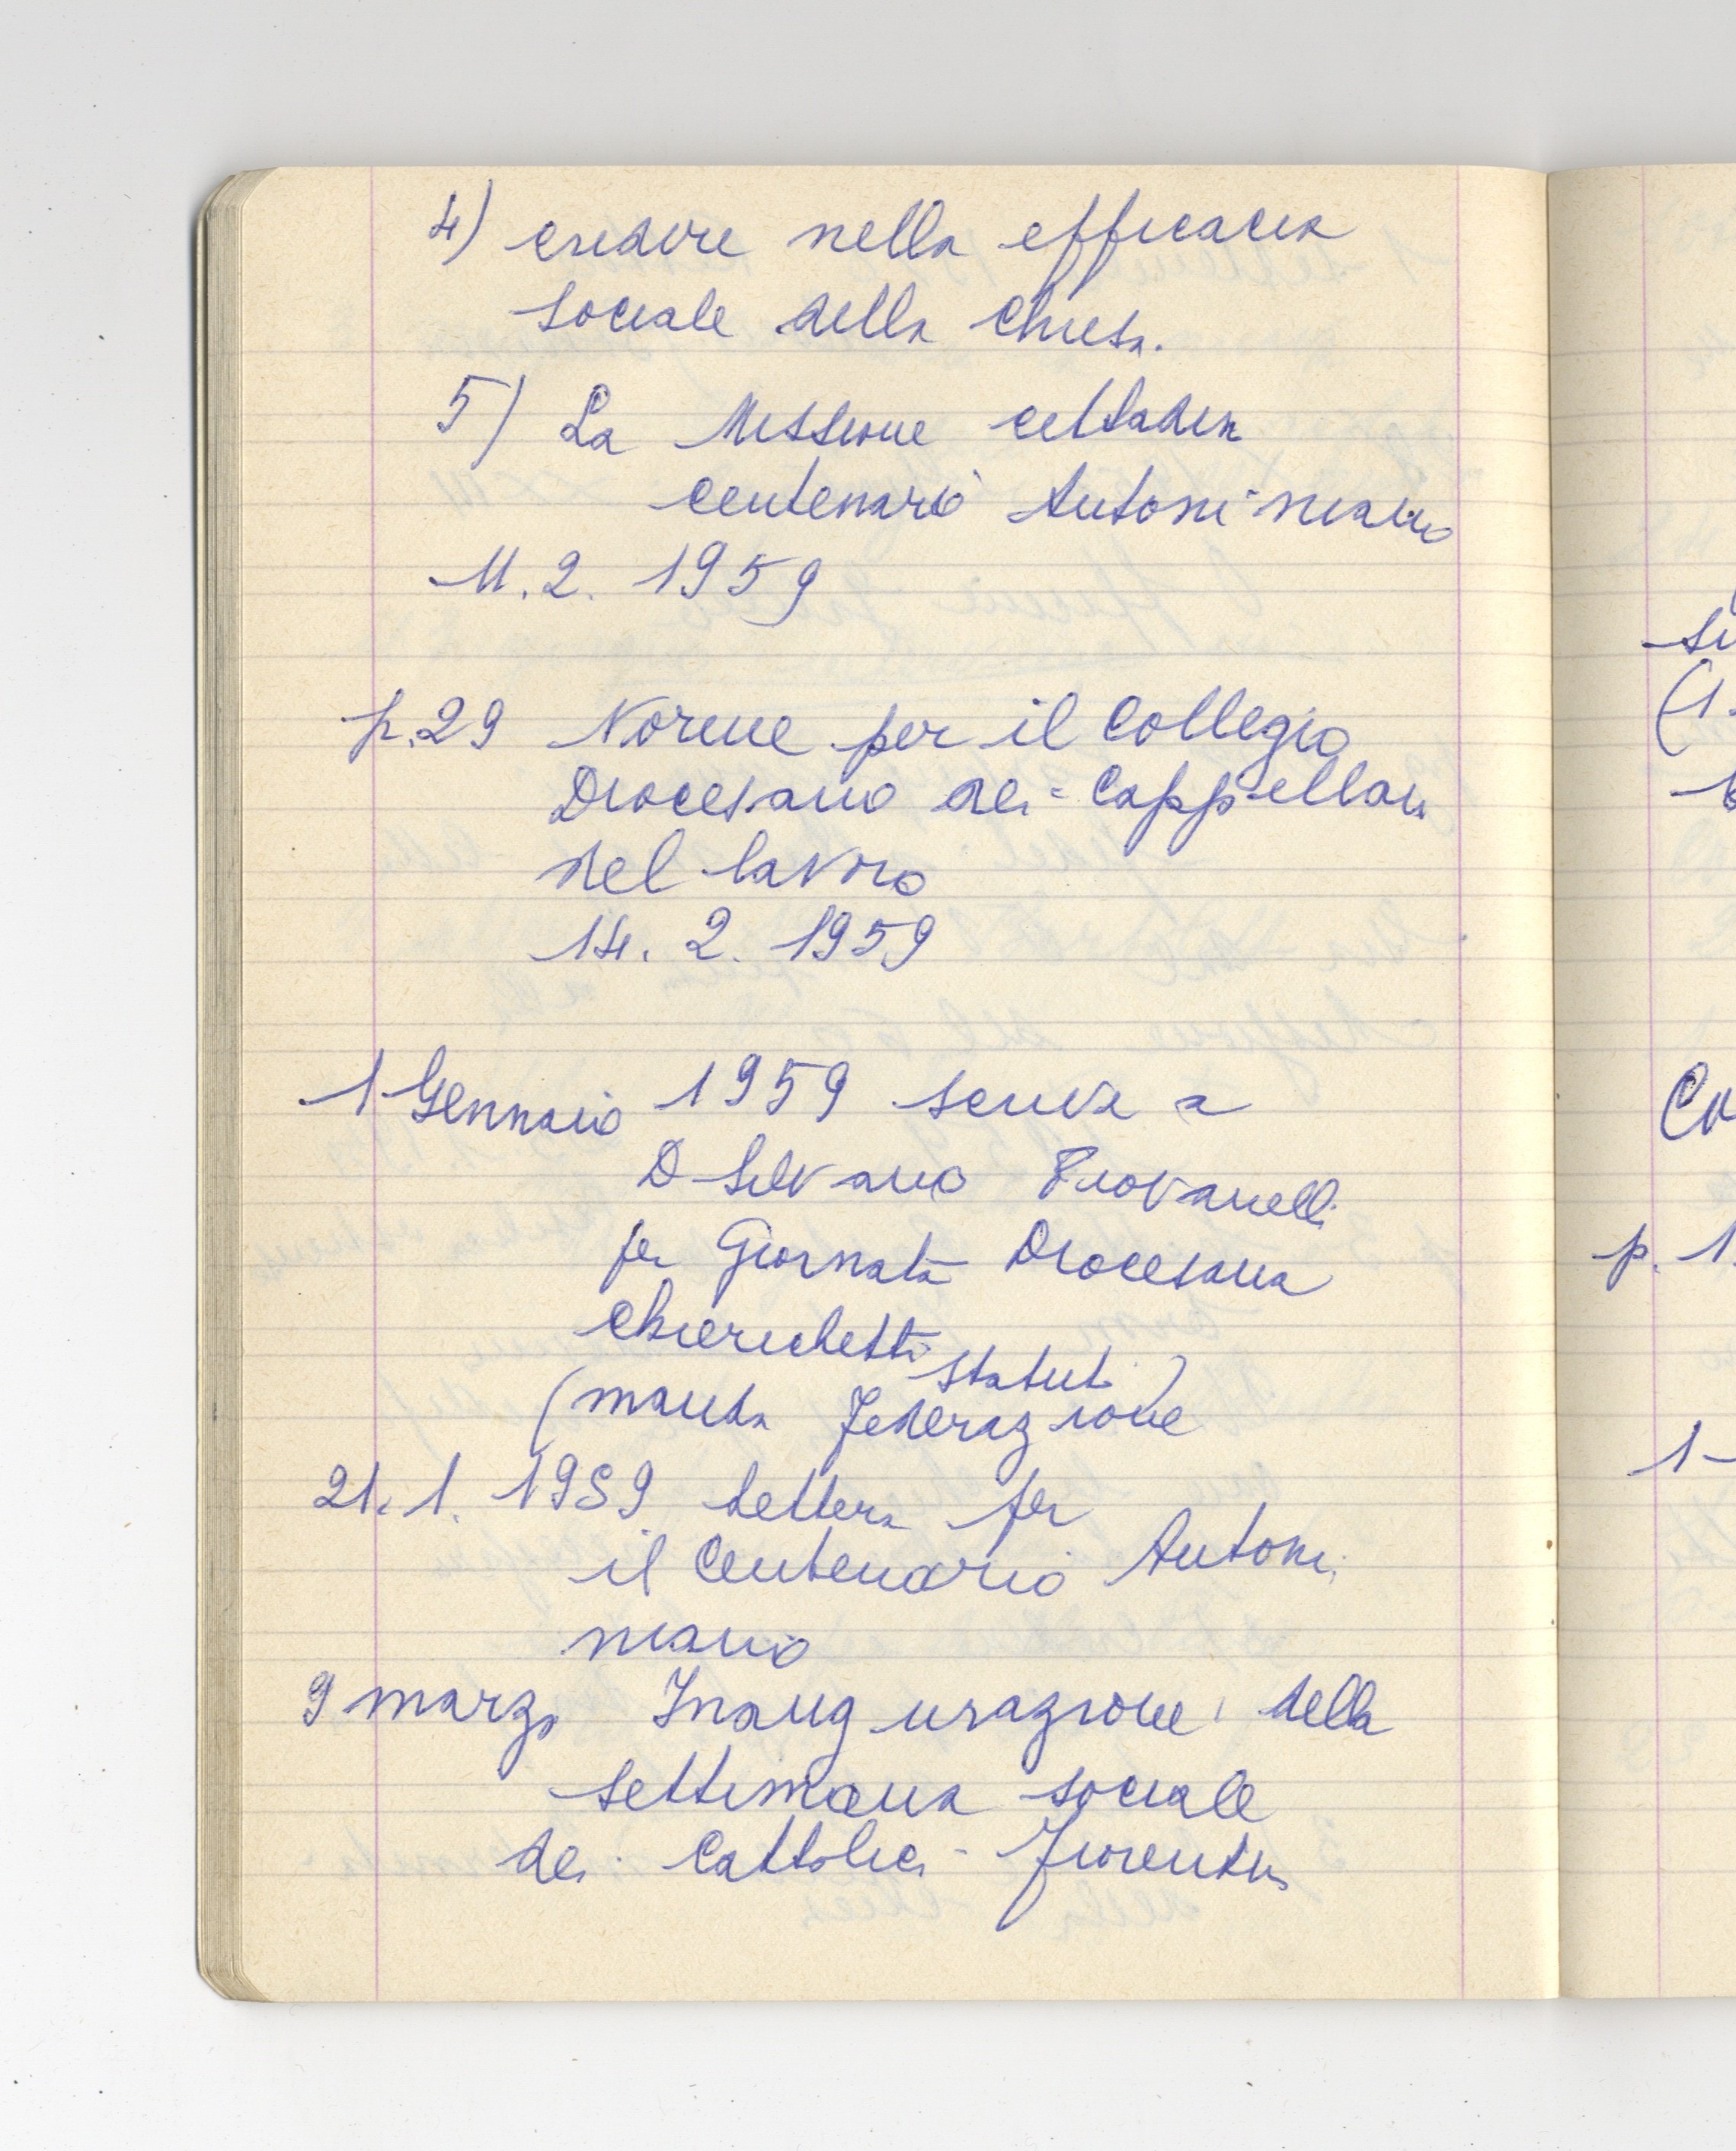 4) credere nella efficacia
sociale della Chiesa.
5) La Missione cittadina
centenario Antoniniano
11.2. 1959
p.29 Norme per il Collegio
Diocesano dei Cappellani
del lavoro
14. 2. 1959
1 Gennaio 1959 scrive a
D Silvano Piovanelli
per Giornata Diocesana
Chierichetti
(manda statuti)
Federazione
21. 1. 1959 lettera per
il Centenario Antoni
niano
9 marzo Inaugurazione della
settimana sociale
dei Cattolici Fiorentini
si
(1.
Co
p. 1
1-